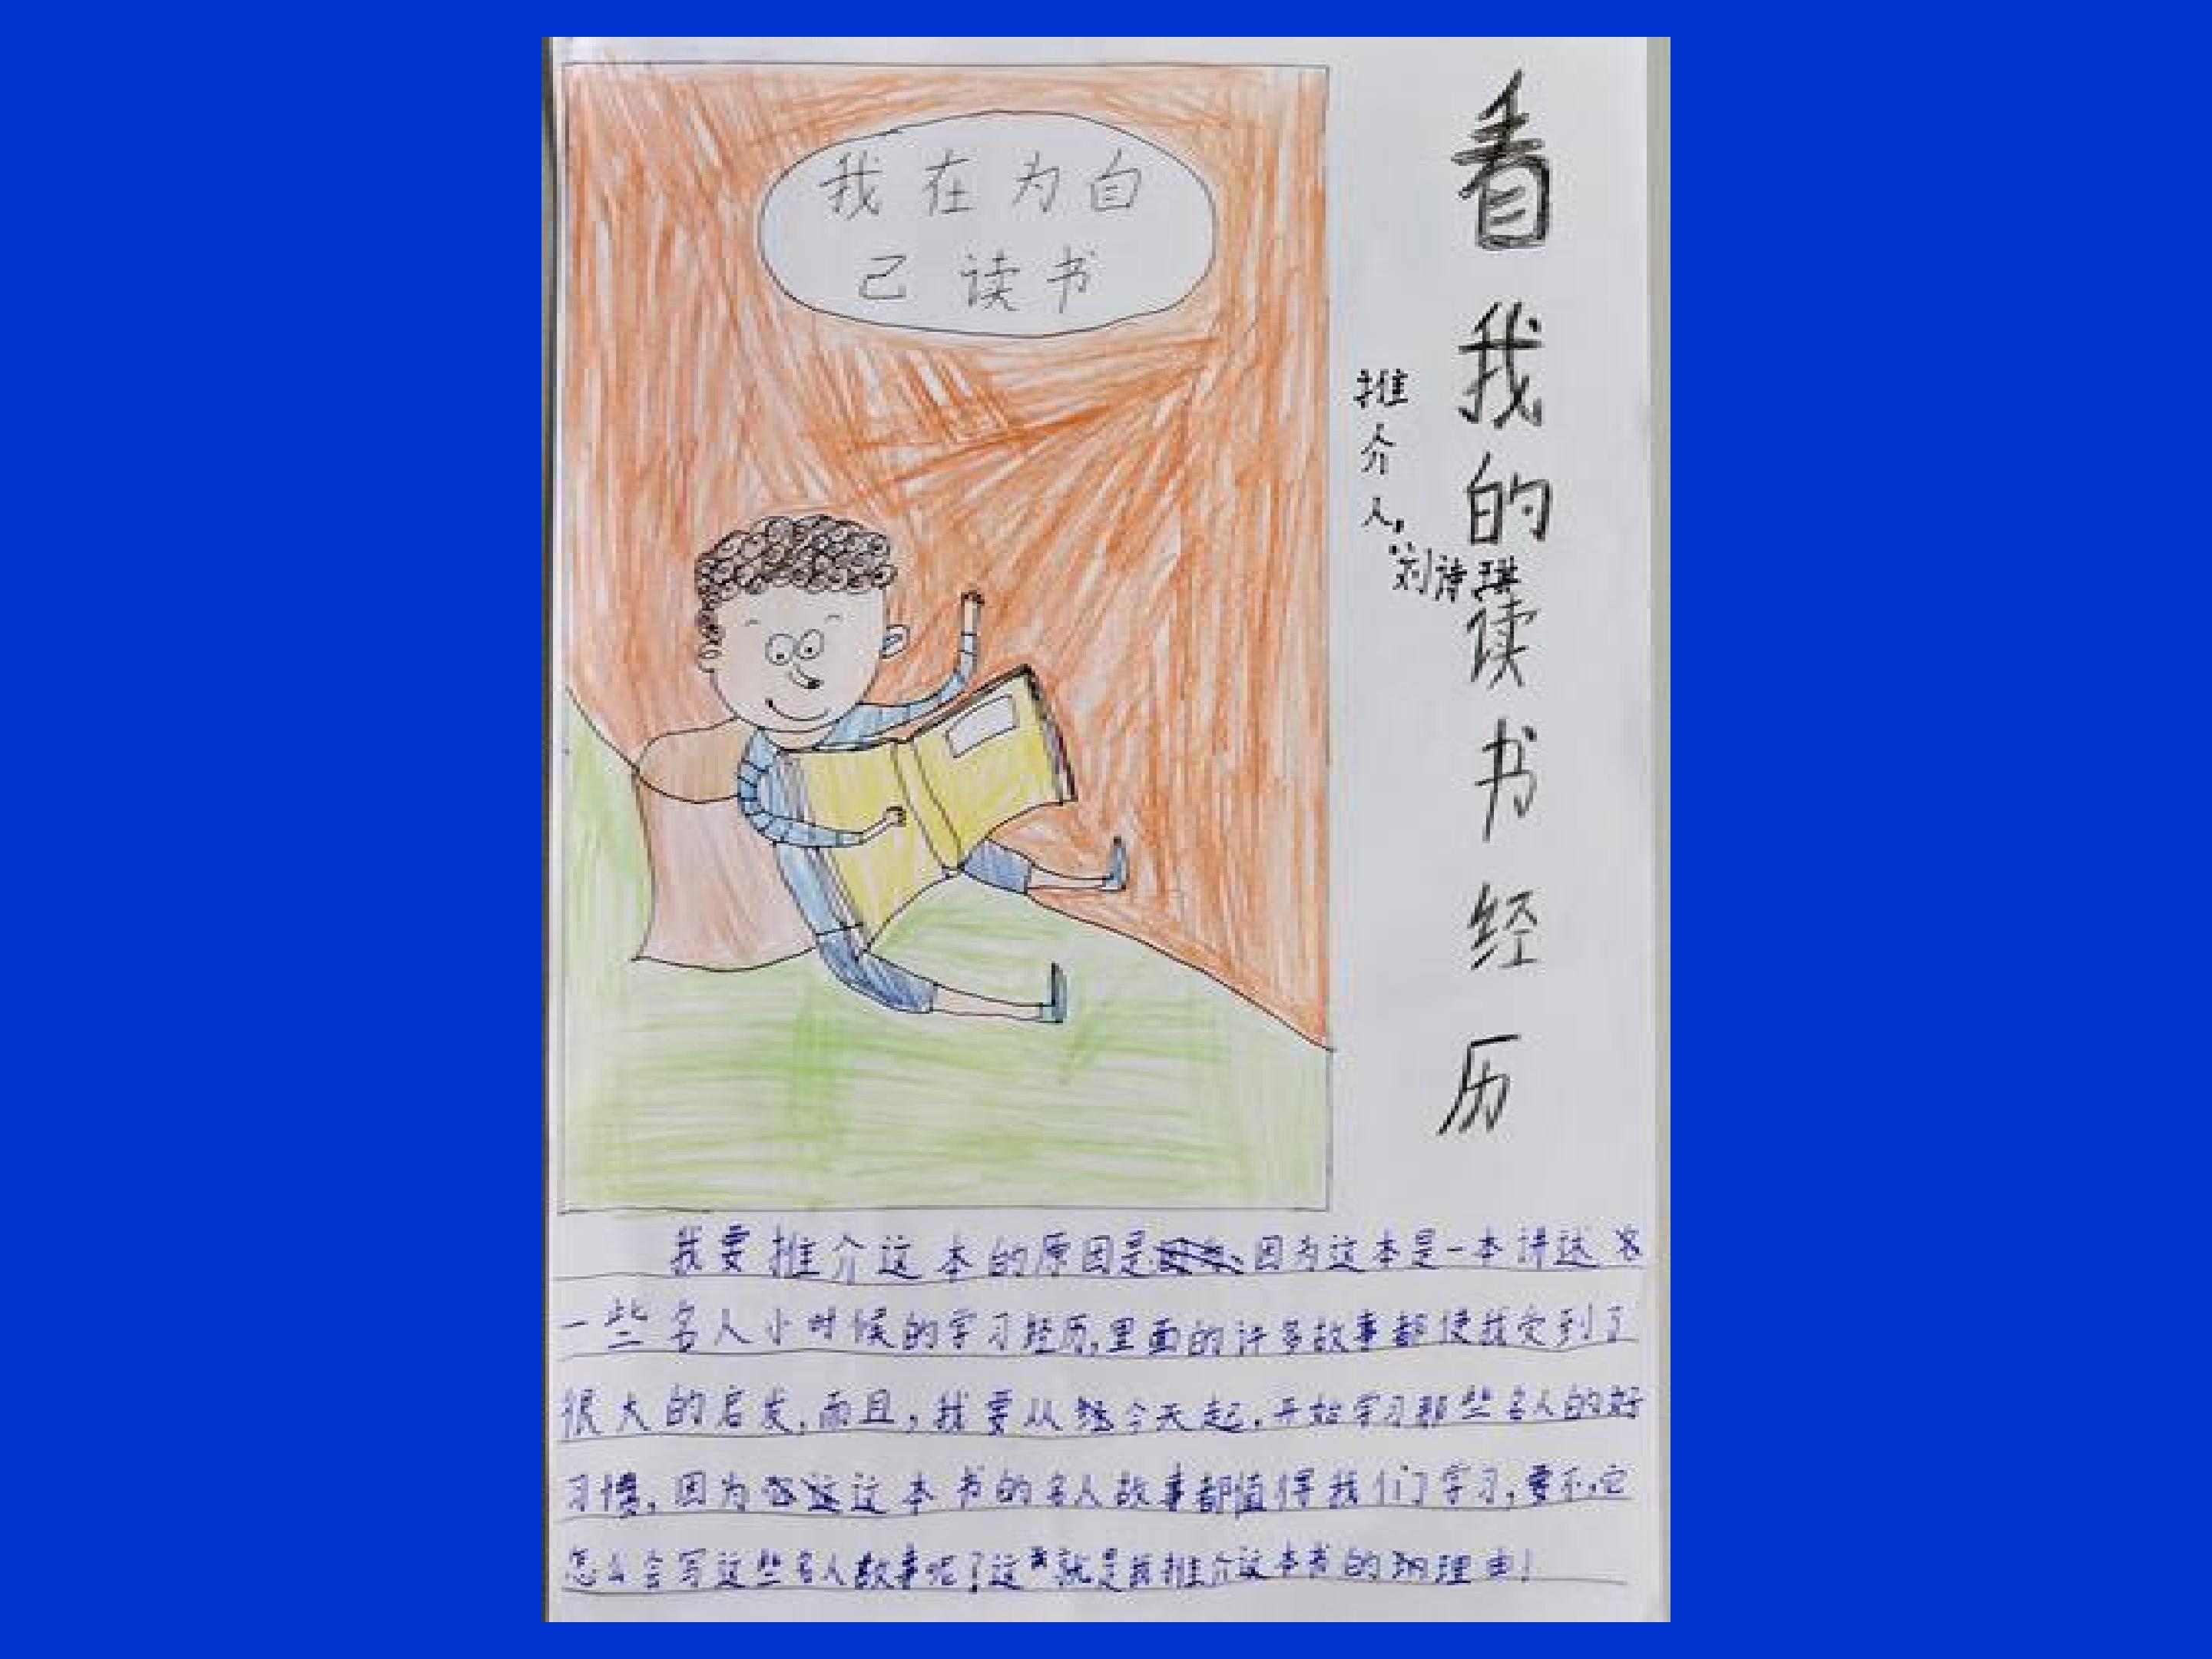 看我的读书经历
推介人:刘诗琪
我在为自
己读书
我要推介这本的原因是 因为这本是一本讲述
一些名人小时候的学习经历,里面的许多故事都使我受到了
很大的启发,而且,我要从 今天起,开始学习那些名人的好
习惯,因为 这本书的名人故事都值得我们学习,要不,它
怎么会写这些名人故事呢?这 就是我推介这本书的 理由!